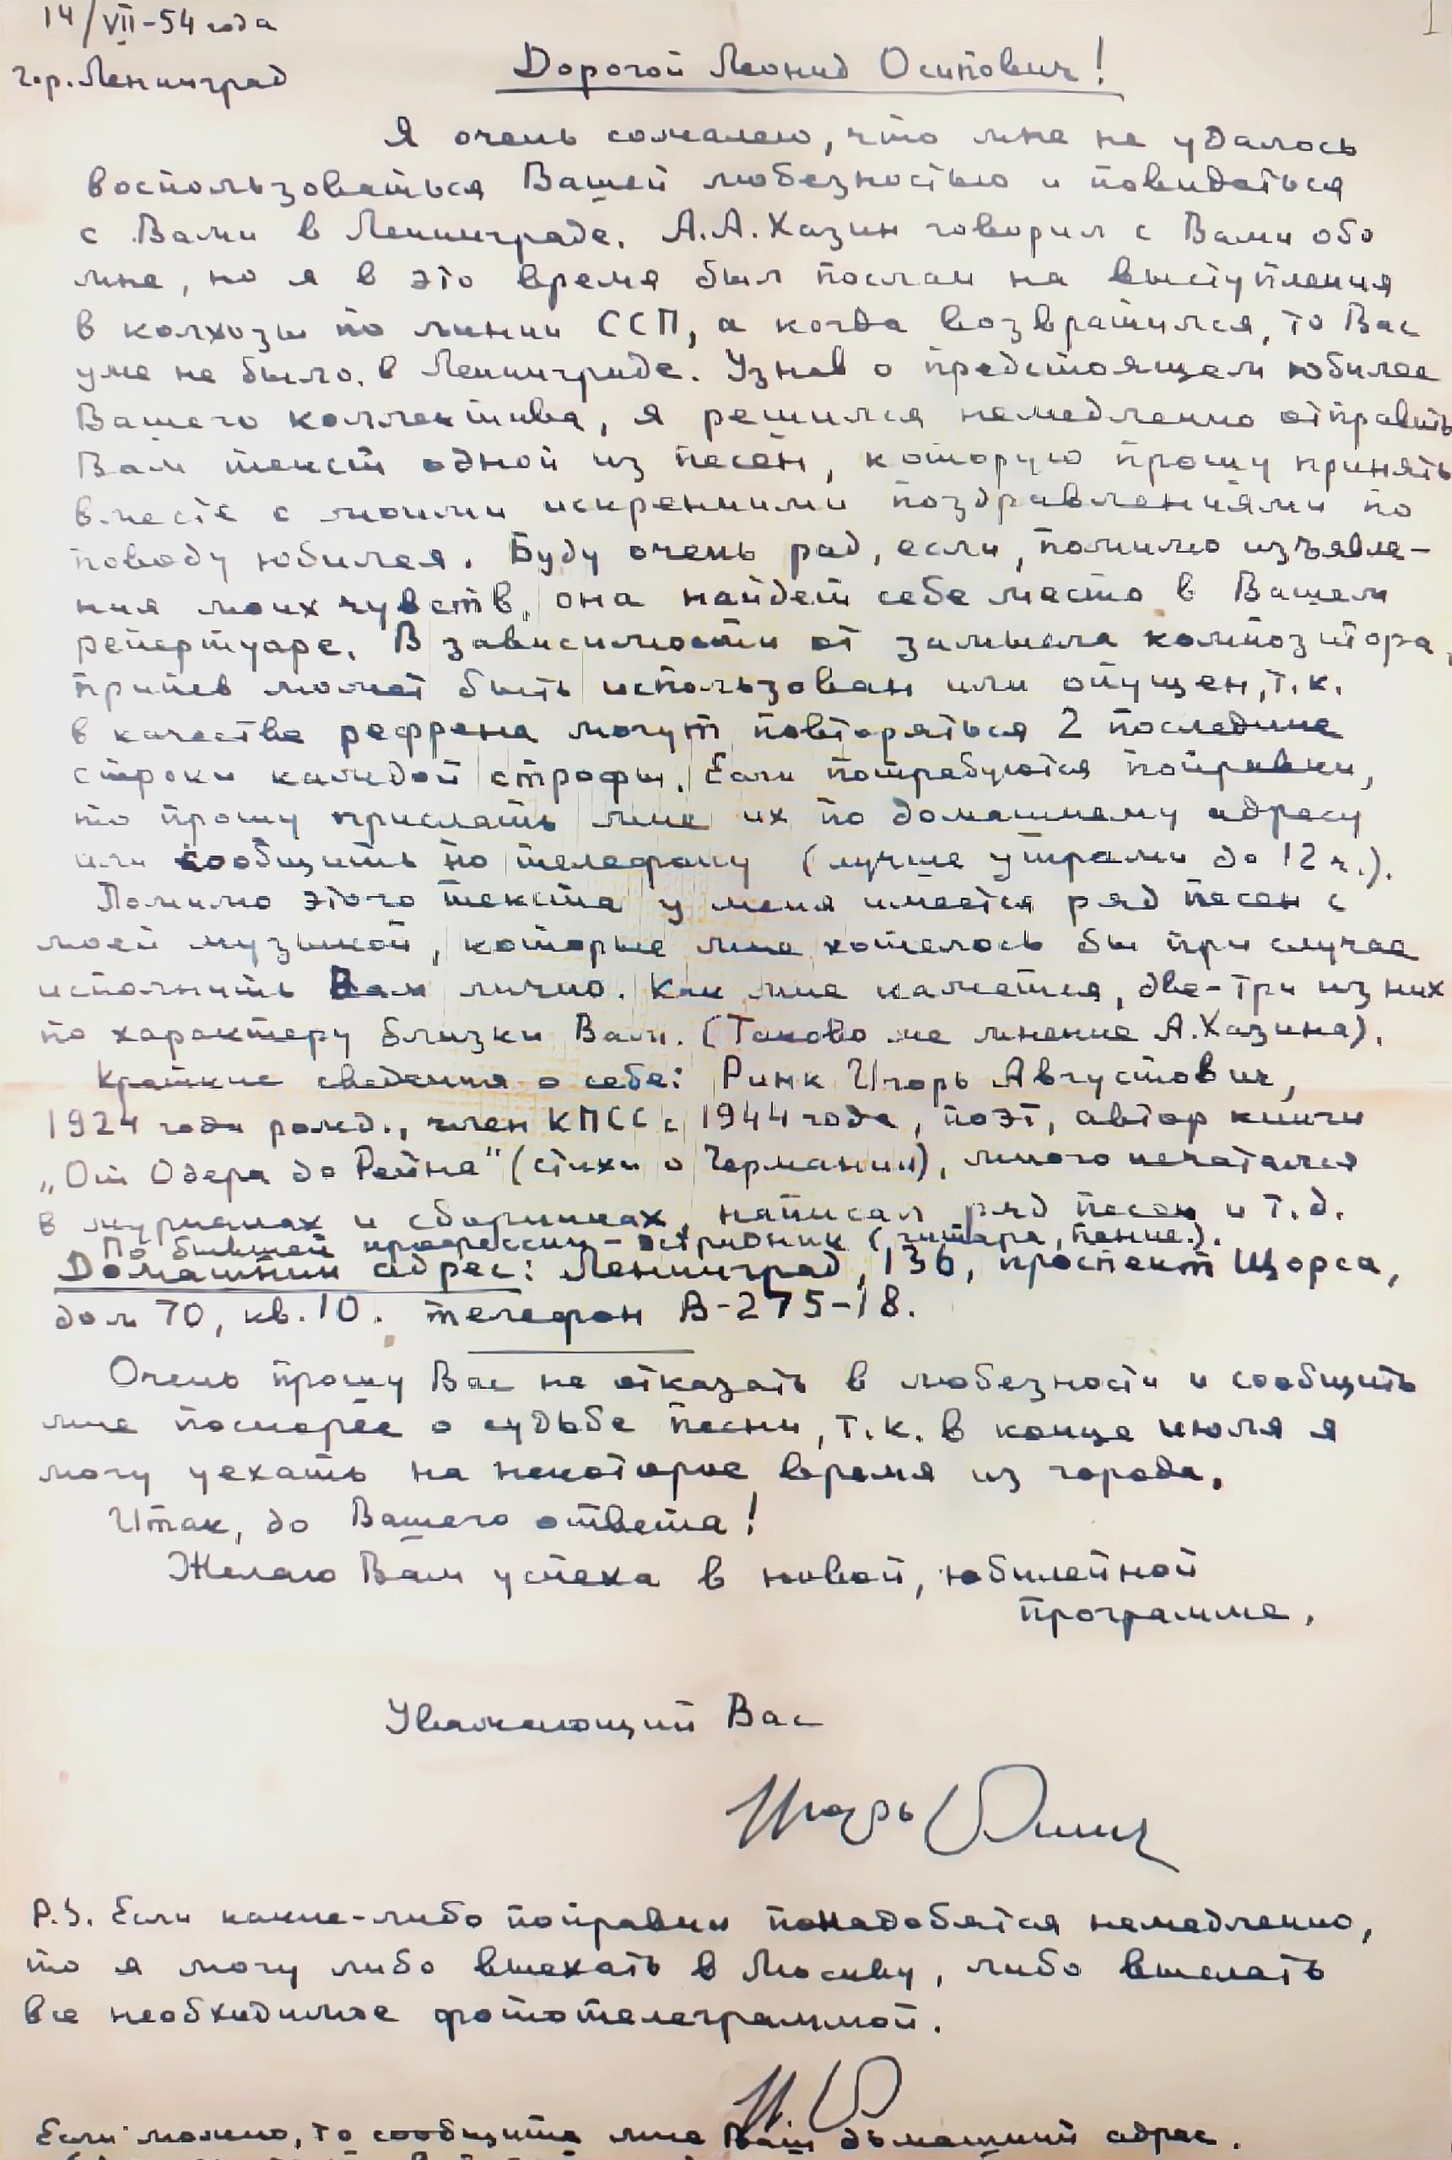 14/VII-54 года
1
гор. Ленинград
Дорогой Леонид Осипович!
Я очень сожалею, что мне не удалось
воспользоваться Вашей любезностью и повидаться
с Вами в Ленинграде. А.А. Хазин говорил с Вами обо
мне, но я в это время был послан на выступления
в колхозы по линии ССП, а когда возвратился, то Вас
уже не было в Ленинграде. Узнав о предстоящем юбилее
Вашего коллектива, я решился немедленно отправить
Вам текст одной из песен, которую прошу принять
вместе с моими искренними поздравлениями по
поводу юбилея. Буду очень рад, если, помимо изъявле-
ния моих чувств, она найдет себе место в Вашем
репертуаре. В зависимости от замысла композитора,
припев может быть использован или опущен, т.к.
в качестве рефрена могут повторяться 2 последние
строки каждой строфы. Если потребуются поправки,
то прошу прислать мне их по домашнему адресу
или сообщить по телефону (лучше утрами до 12 ч.).
Помимо этого текста у меня имеется ряд песен с
моей музыкой, которые мне хотелось бы при случае
исполнить Вам лично. Как мне кажется, две-три из них
по характеру близки Вам. (Таково же мнение А. Хазина).
Краткие сведения о себе: Ринк Игорь Августович,
1924 года рожд., член КПСС с 1944 года, поэт, автор книги
„От Одера до Рейна" (стихи о Германии), много печатался
в журналах и сборниках, написал ряд песен и т.д.
По бывшей профессии - эстрадник (гитара, пение.).
Домашний адрес: Ленинград, 136, проспект Щорса,
дом 70, кв. 10. телефон В-275-18.
Очень прошу Вас не отказать в любезности и сообщить
мне поскорее о судьбе песни, т.к. в конце июля я
могу уехать на некоторое время из города.
Итак, до Вашего ответа!
Желаю Вам успеха в новой, юбилейной
программе.
Уважающий Вас
Игорь Ринк
P.S. Если какие-либо поправки понадобятся немедленно,
то я могу либо выехать в Москву, либо выслать
все необходимое фототелеграммой.
И. Р
Если можно, то сообщите мне Ваш домашний адрес.